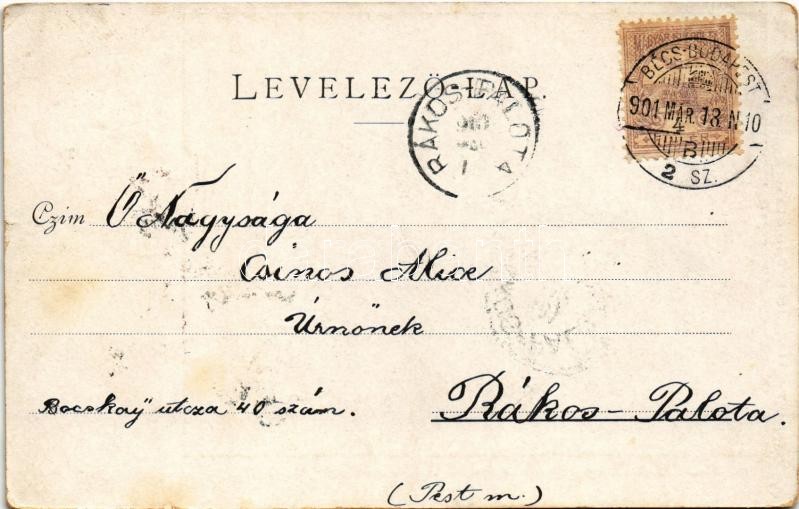 LEVELEZŐ-LAP.
BÉCS-BUDAPEST
901 MÁR. 13 N 10
4
B
2 SZ.
RÁKOS-PALOTA
Czim Ő Nagysága
Csinos Alice
Úrnőnek
Bocskaÿ utcza 40 szám. Rákos-Palota.
(Pest m.)